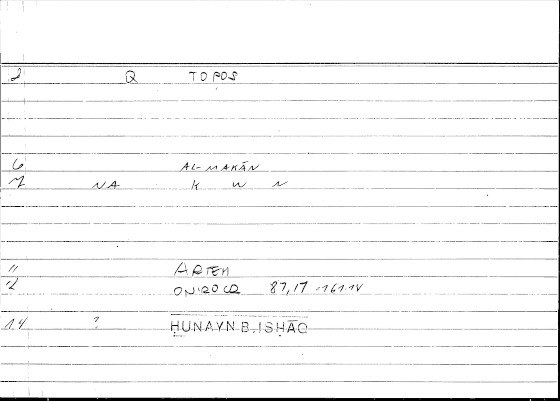 2 Q TOPOS
6 AL-MAKĀN
7 NA K W N
11 ARTEM
12 ONIROCR 87,17 161.14
14 ? ḤUNAYN B. ISḤĀQ